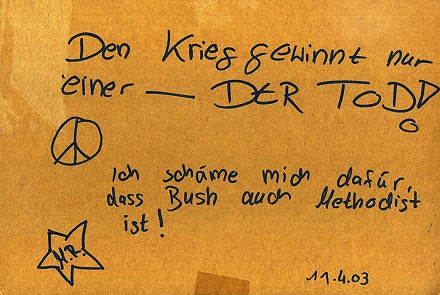 Den Krieg gewinnt nur
einer — DER TOD!
Ich schäme mich dafür,
dass Bush auch Methodist
ist!
M.R.
11.4.03